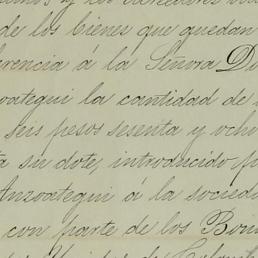 de los bienes que quedan
erencia á la Señora D
oategui la cantidad de
seis pesos sesenta y ocho
su dote, introducido p
Anzoategui á la socieda
con parte de los Bon